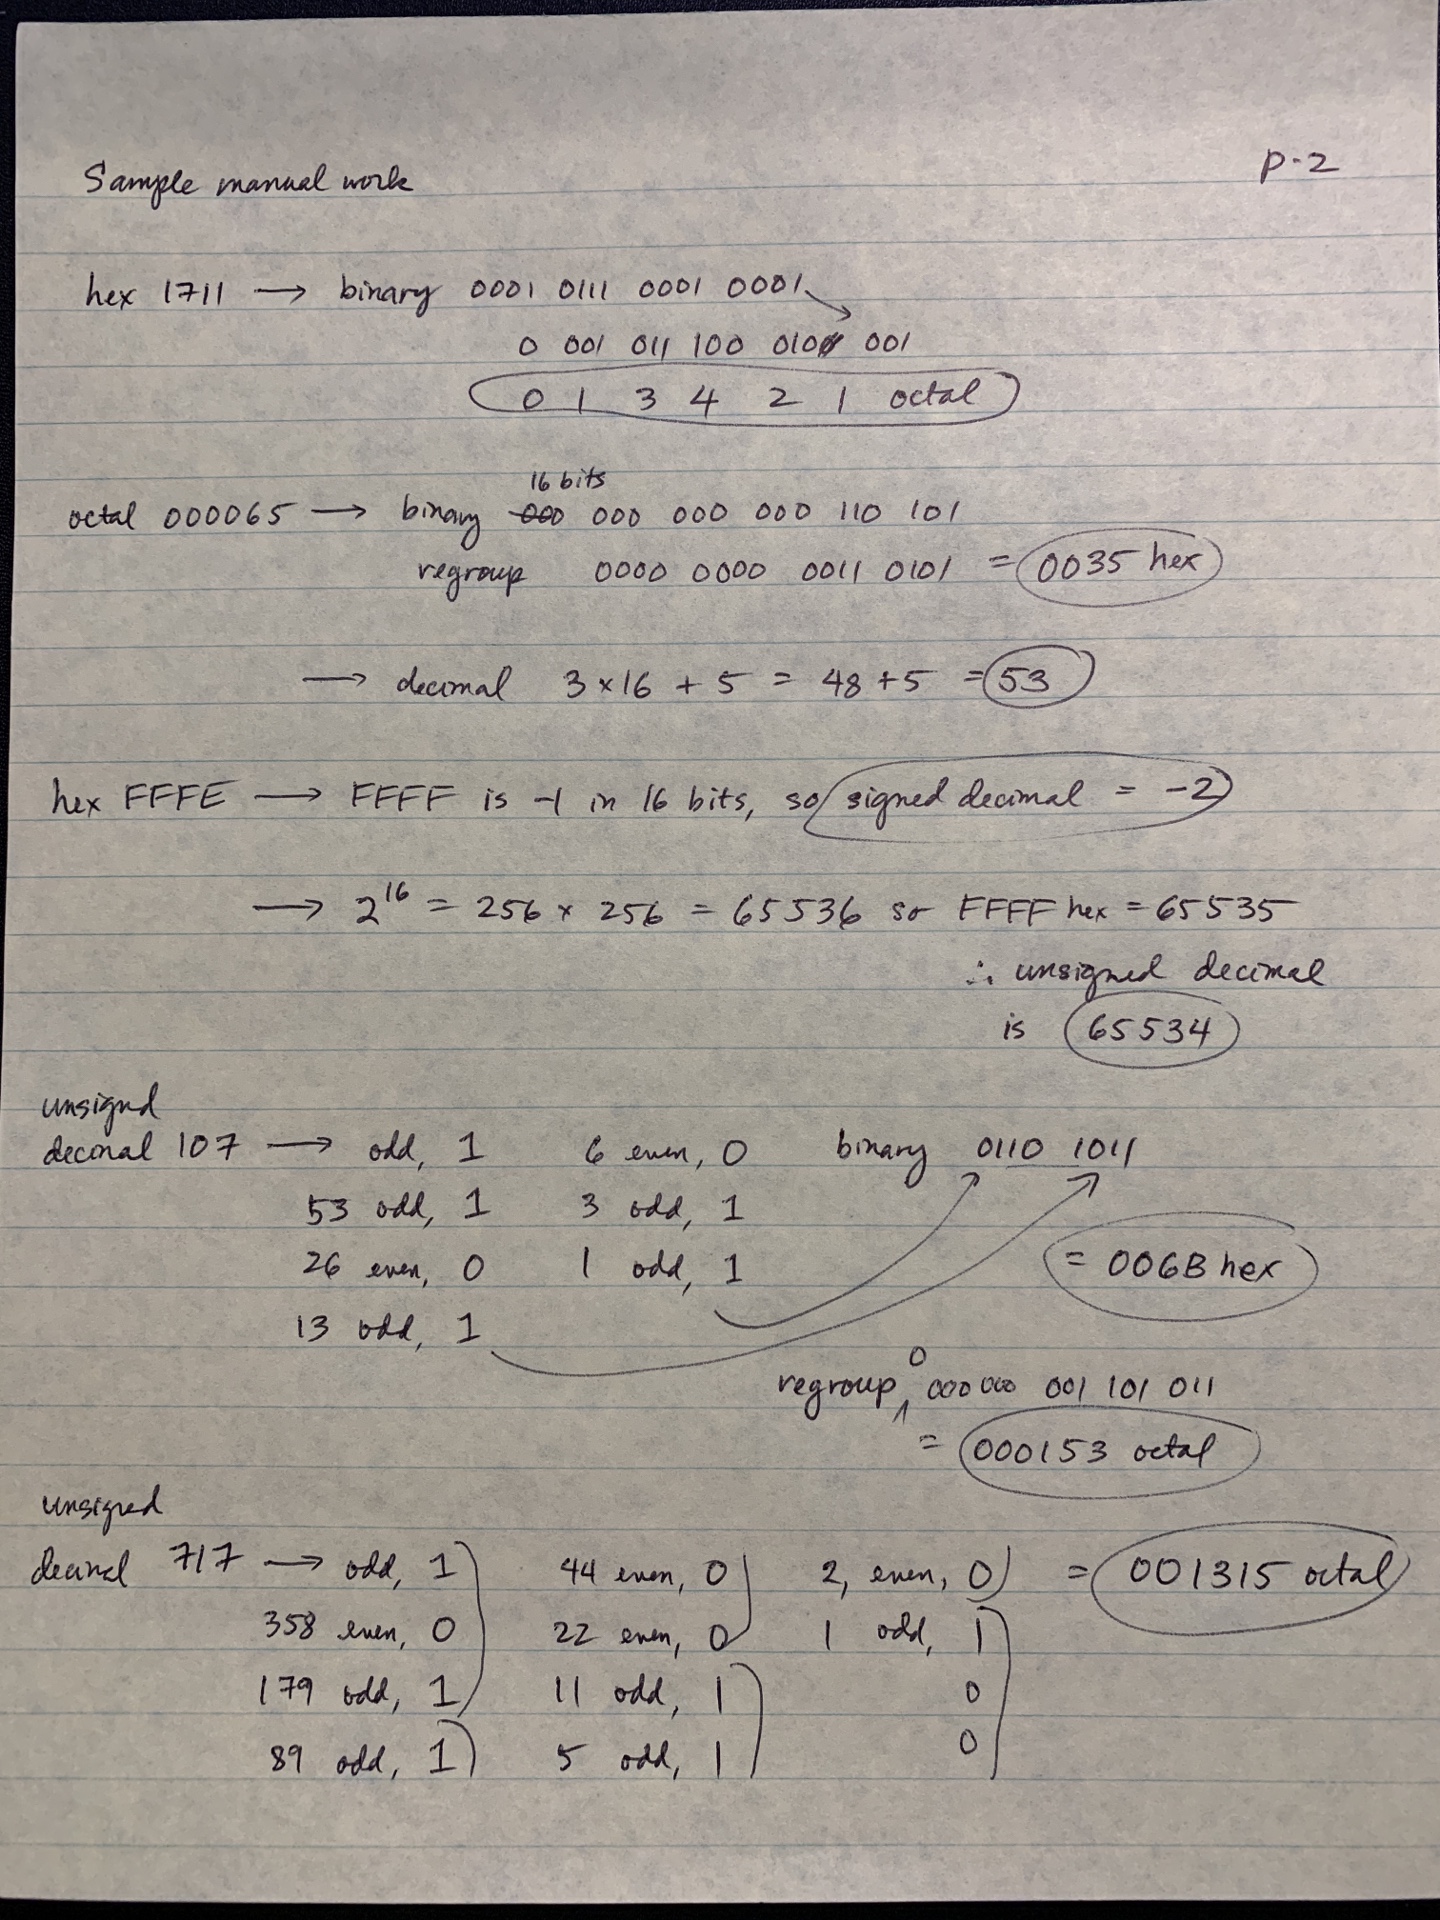 p.2
Sample manual work
hex 1711 → binary 0001 0111 0001 0001
0 001 011 100 010 001
0 1 3 4 2 1 octal
16 bits
octal 000065 → binary 000 000 000 000 110 101
regroup 0000 0000 0011 0101 = 0035 hex
→ decimal 3 × 16 + 5 = 48 + 5 = 53
hex FFFE → FFFF is -1 in 16 bits, so signed decimal = -2
→ 2^16 = 256 × 256 = 65536 so FFFF hex = 65535
∴ unsigned decimal
is 65534
unsignd
decimal 107 → odd, 1 6 even, 0 binary 0110 1011
53 odd, 1 3 odd, 1
26 even, 0 1 odd, 1 = 006B hex
13 odd, 1
0
regroup 000 000 001 101 011
= 000153 octal
unsigned
decimal 717 → odd, 1 44 even, 0 2, even, 0 = 001315 octal
358 even, 0 22 even, 0 1 odd, 1
179 odd, 1 11 odd, 1 0
89 odd, 1 5 odd, 1 0